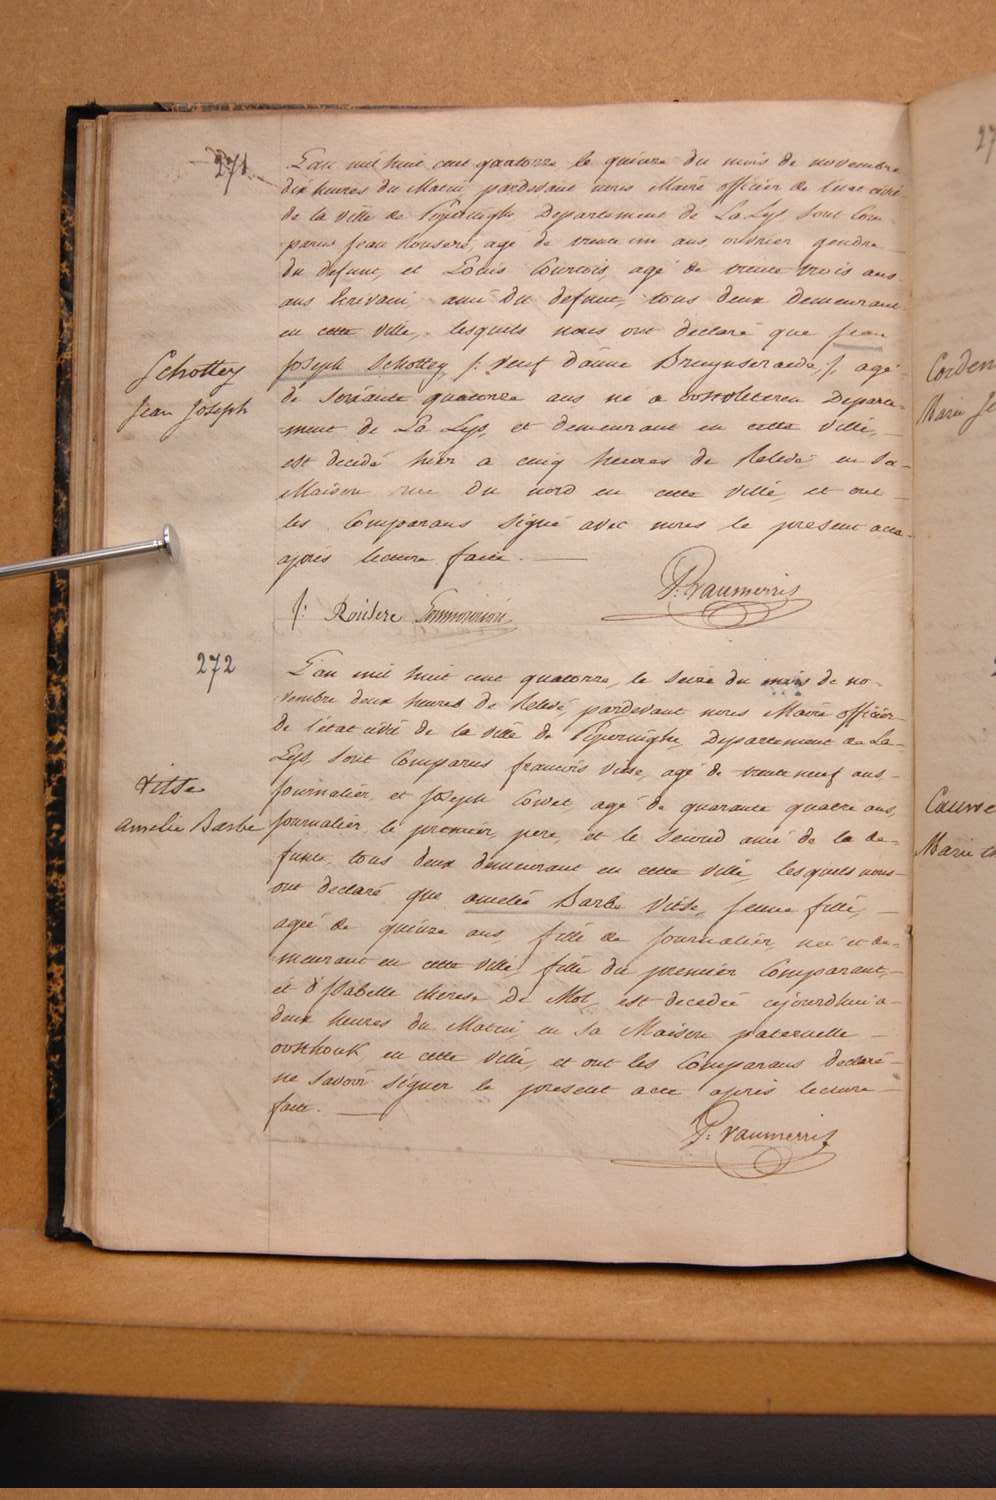 271
L'an mil huit cent quatorze le quinze du mois de novembre
dix heures du Matin pardevant nous Maire officier de l'etat civil
de la ville de Poperinghe Departement de La Lys sont Com-
parus Jean Rousere, agé de trente un ans, ouvrier gendre
du defunt, et Louis Courtois, agé de trente trois ans
ans Ecrivain, ami du defunt, tous deux demeurant
en cette ville, lesquels nous ont declaré que Jean
Joseph Schottey /: veuf d'anne Bruynseraede :/ agé
de soixante quatorze ans né a oostvleteren Departe-
ment de La Lys, et demeurant en cette ville,
est decedé hier a cinq heures de Relevé en sa
Maison rue du nord en cette ville, et ont
les Comparans signé avec nous le present acte
après lecture faite.
Schottey
Jean Joseph
P: Vaumerris
J: Rousere
272
L'an mil huit cent quatorze, le seize du mois de no-
vembre deux heures de Relevé, pardevant nous Maire officier
de l'état civil de la ville de Poperinghe, Departement de La
Lys, sont Comparus francois Vitse, agé de trente neuf ans
journalier, et Joseph Cordet agé de quarante quatre ans,
journalier, le premier, pere, et le second ami de la de-
funte, tous deux demeurant en cette ville, lesquels nous
ont declaré que amelie Barbe Vitse, jeune fille,
agée de quinze ans, fille de journalier, née et de-
meurant en cette ville, fille du premier Comparant,
et d'Isabelle therese De Mol, est decedée cejourdhui a
deux heures du Matin, en sa Maison paternelle
oosthouk, en cette ville, et ont les Comparans declaré
ne savoir signer le present acte après lecture
faite.
Vitse
Amelie Barbe
P: Vaumerris
27
Corden
Marie Je
Cauwe
Marie